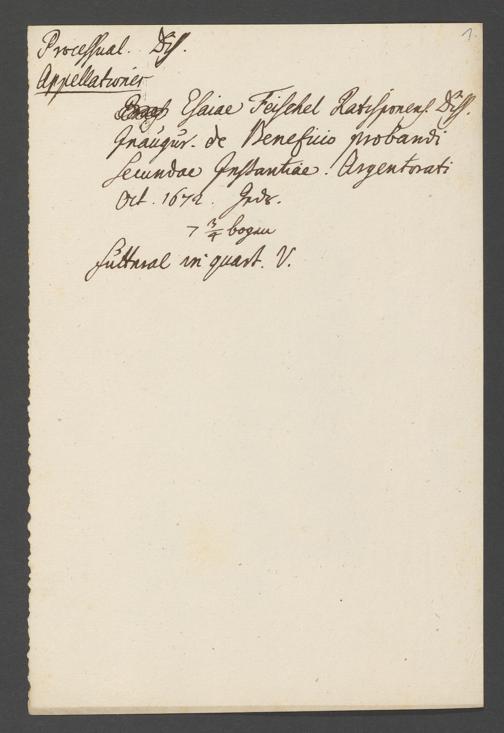 1.
Processual. Diss.
Appellationes
Esaiae Feischel Ratisponens. Diss.
Inaugur. de Beneficio probandi
secundae Instantiae. Argentorati
Oct. 1672. Gedr.
7 3/4 bogen
futteral in quart. V.